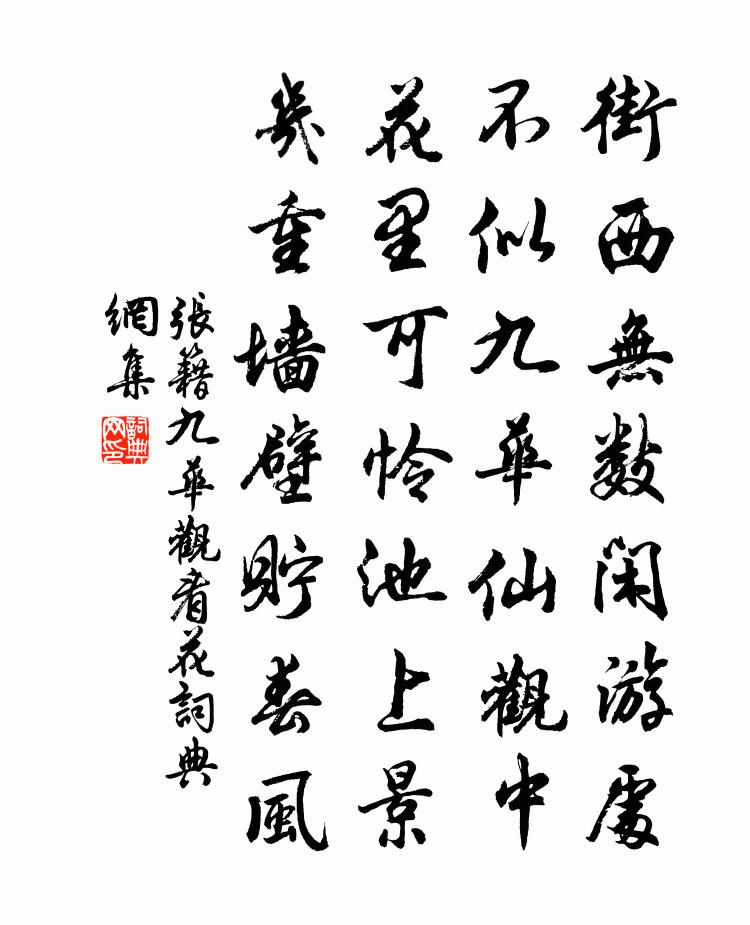 街西無數閑游處
不似九華仙觀中
花里可怜池上景
幾重墙壁貯春風
張籍九華觀看花詞典
網集
詞典
网印